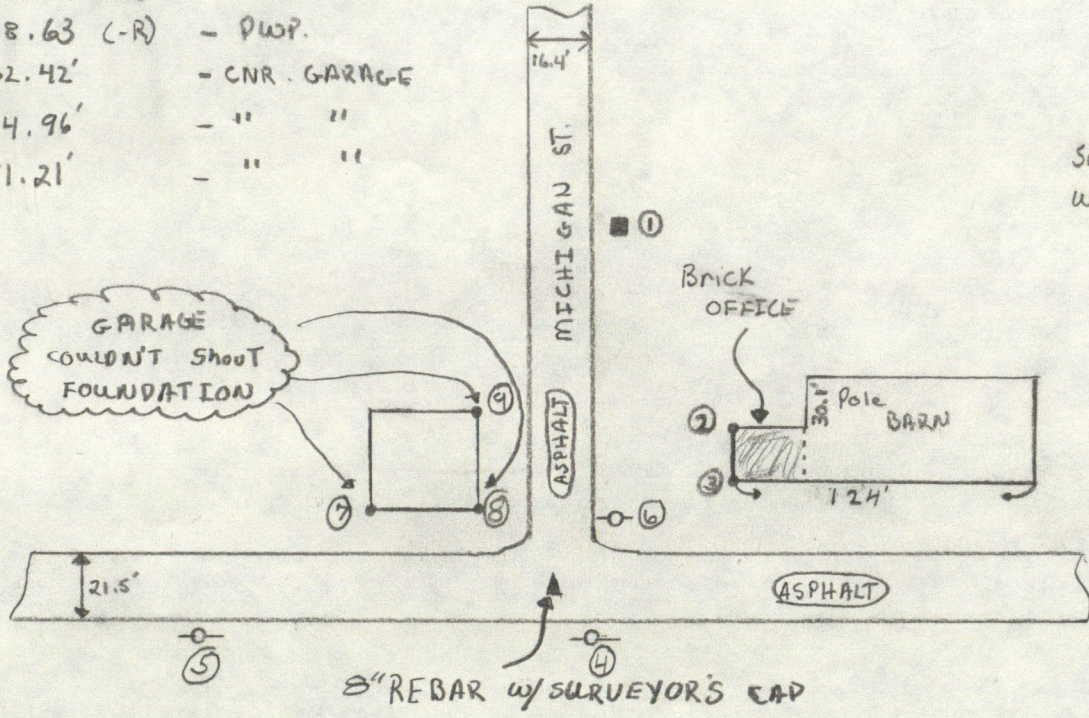 8.63 (-R) - PWP.
2.42' - CNR. GARAGE
4.96' - " "
1.21' - " "
16.4'
MICHIGAN ST.
①
Brick
OFFICE
GARAGE
COULDN'T Shout
FOUNDATION
⑨
②
30.1'
Pole
BARN
ASPHALT
③
124'
⑦
⑧
⑥
21.5'
ASPHALT
⑤
④
8" REBAR W/ SURVEYOR'S CAP